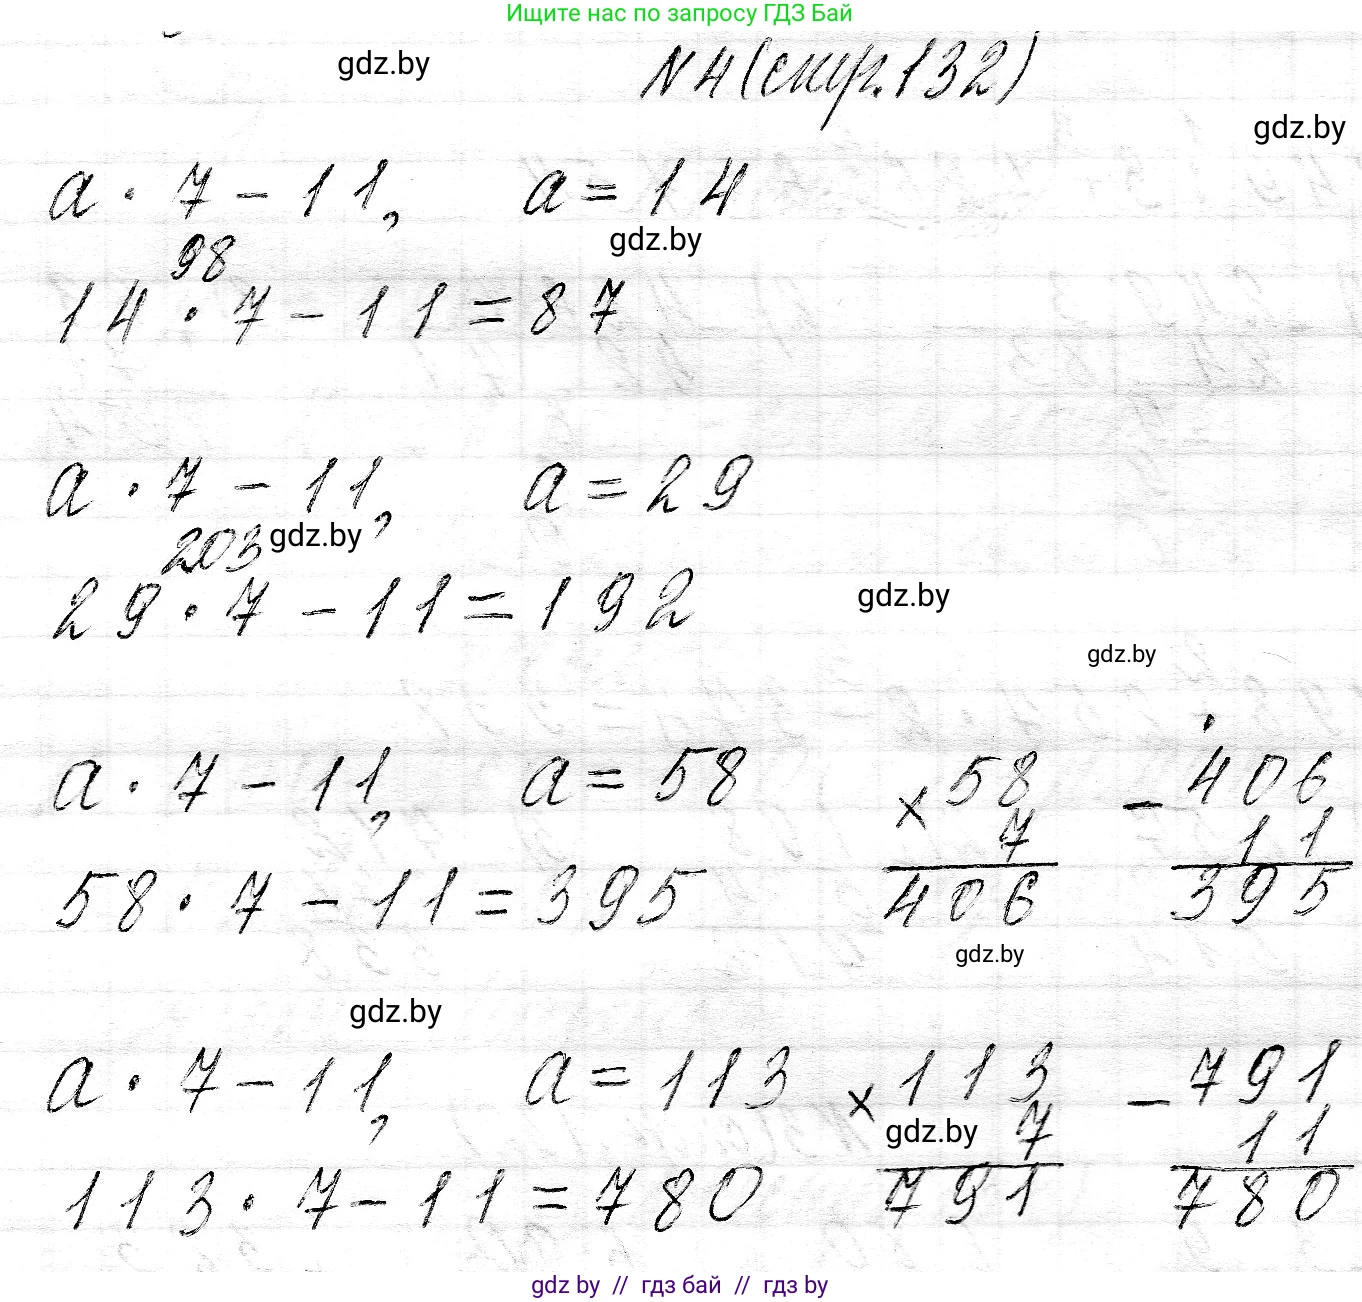 Ищите нас по запросу ГДЗ Бай
gdz.by
N 4 (стр. 132)
gdz.by
a · 7 - 11, a = 14
gdz.by
98
14 · 7 - 11 = 87
a · 7 - 11, a = 29
203 gdz.by
29 · 7 - 11 = 192
gdz.by
gdz.by
a · 7 - 11, a = 58
× 58
7
406
- 406
11
395
58 · 7 - 11 = 395
gdz.by
gdz.by
a · 7 - 11, a = 113
× 113
gdz.by 7
791
- 791
11
780
113 · 7 - 11 = 780
gdz by // гдз бай // гдз by